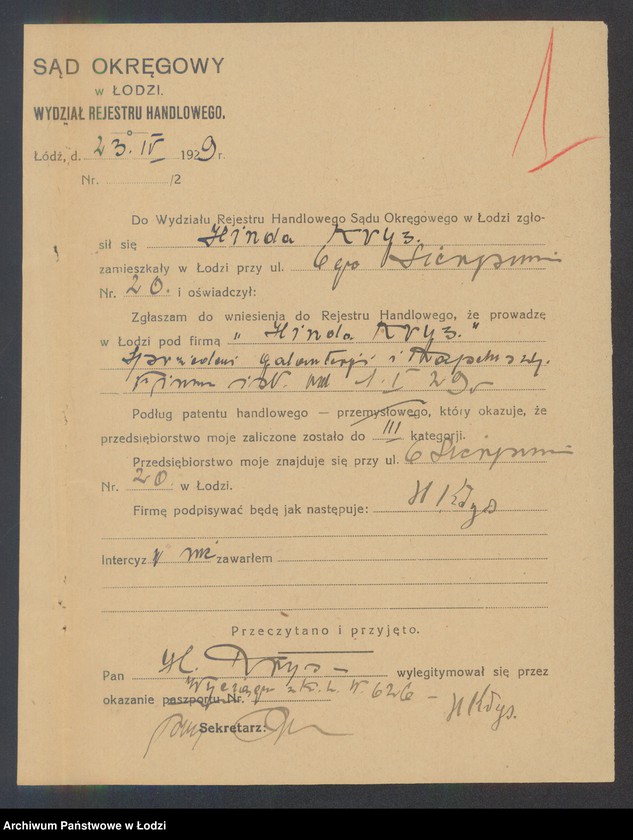 SĄD OKRĘGOWY
W ŁODZI.
WYDZIAŁ REJESTRU HANDLOWEGO.
Łódź, d. 23. IV 1929 r.
Nr. /2
1
Do Wydziału Rejestru Handlowego Sądu Okręgowego w Łodzi zgło-
sił się Hinda Kryz.
zamieszkały w Łodzi przy ul. 6 go Sierpnia
Nr. 20. i oświadczył:
Zgłaszam do wniesienia do Rejestru Handlowego, że prowadzę
w Łodzi pod firmą „Hinda Kryz."
galanterji i
Firma istn. od 1. I 29 r
Podług patentu handlowego — przemysłowego, który okazuje, że
przedsiębiorstwo moje zaliczone zostało do III kategorji.
Przedsiębiorstwo moje znajduje się przy ul. 6 Sierpnia
Nr. 20 w Łodzi.
Firmę podpisywać będę jak następuje: H
Intercyzy nie zawarłem
Przeczytano i przyjęto.
Pan H. wylegitymował się przez
okazanie paszportu Nr. 626 —
Sekretarz:
Archiwum Państwowe w Łodzi